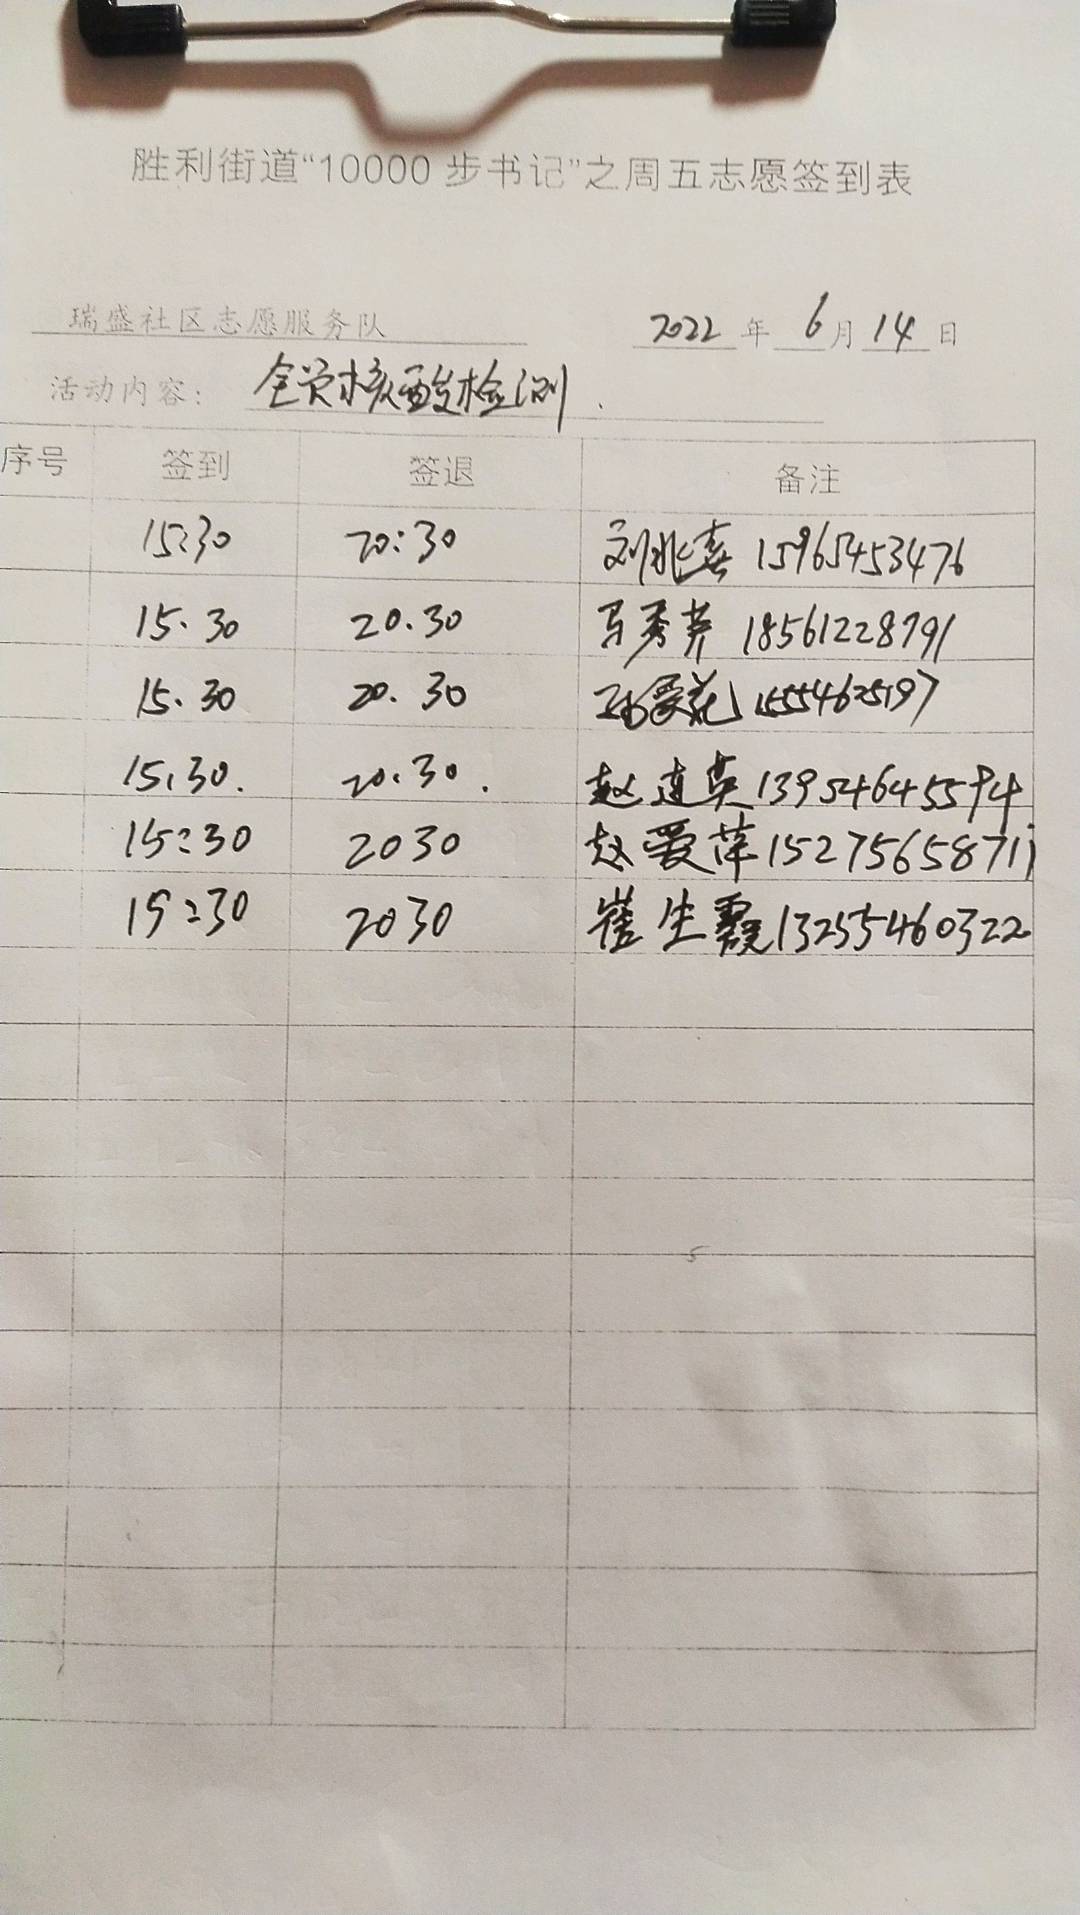 胜利街道“10000 步书记”之周五志愿签到表
瑞盛社区志愿服务队 2022 年 6 月 14 日
活动内容： 全员核酸检测
序号 签到 签退 备注
15:30 20:30 刘兆喜 15965453476
15.30 20.30 马秀芹 18561228791
15.30 20.30 孙爱花 15554625197
15.30. 20.30. 赵连英 13954645594
15:30 2030 赵爱萍 15275658711
15:30 2030 崔生霞 13255460322